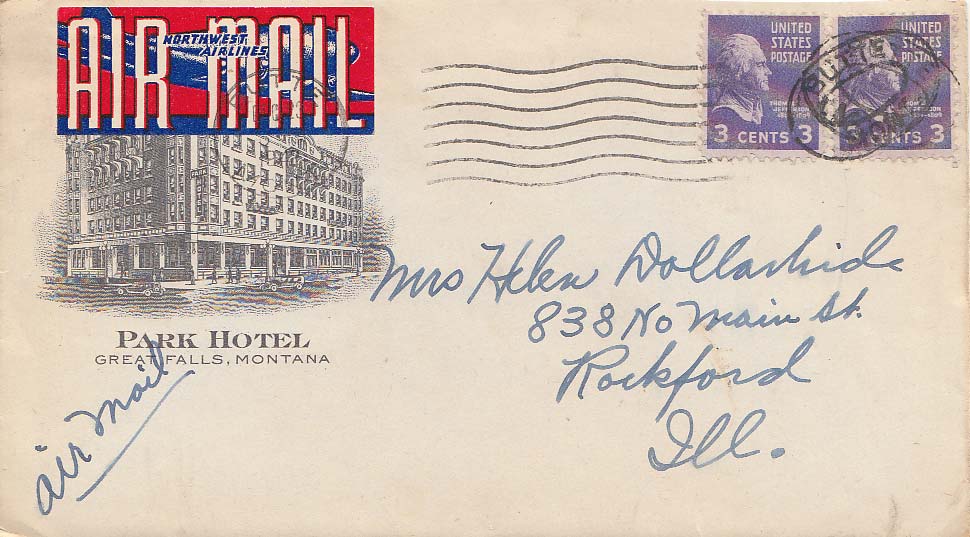 AIR MAIL
NORTHWEST
AIRLINES
UNITED
STATES
POSTAGE
THOMAS
JEFFERSON
3 CENTS 3
UNITED
STATES
POSTAGE
3 CENTS 3
BUTTE
PARK HOTEL
GREAT FALLS, MONTANA
air mail
Mrs Helen Dollarhide
838 No Main St.
Rockford
Ill.